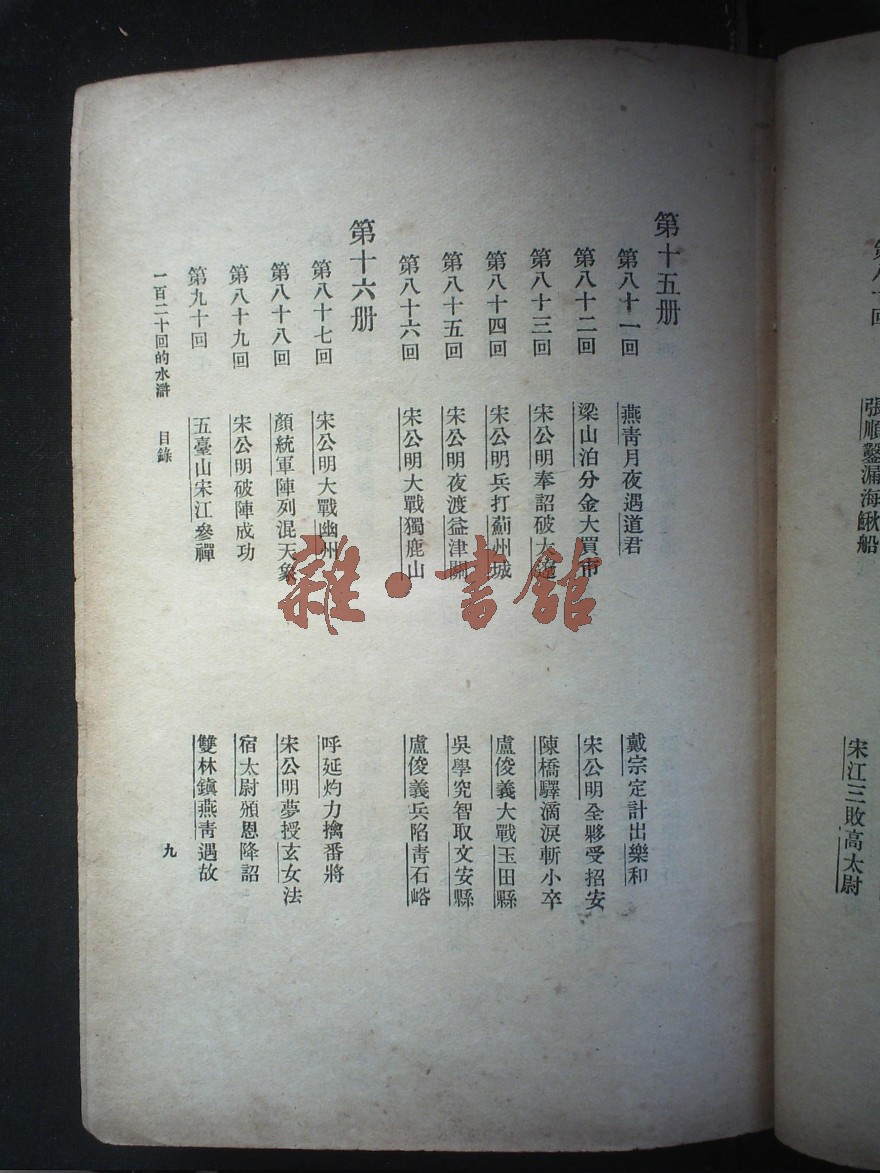 第八十回
張順鑿漏海鰍船
宋江三敗高太尉
第十五册
第八十一回 燕青月夜遇道君 戴宗定計出樂和
第八十二回 梁山泊分金大買市 宋公明全夥受招安
第八十三回 宋公明奉詔破大遼 陳橋驛滴淚斬小卒
第八十四回 宋公明兵打薊州城 盧俊義大戰玉田縣
第八十五回 宋公明夜渡益津關 吳學究智取文安縣
第八十六回 宋公明大戰獨鹿山 盧俊義兵陷青石峪
第十六册
第八十七回 宋公明大戰幽州 呼延灼力擒番將
第八十八回 顏統軍陣列混天象 宋公明夢授玄女法
第八十九回 宋公明破陣成功 宿太尉頒恩降詔
第九十回 五臺山宋江參禪 雙林鎮燕青遇故
一百二十回的水滸 目錄 九
雜·書館